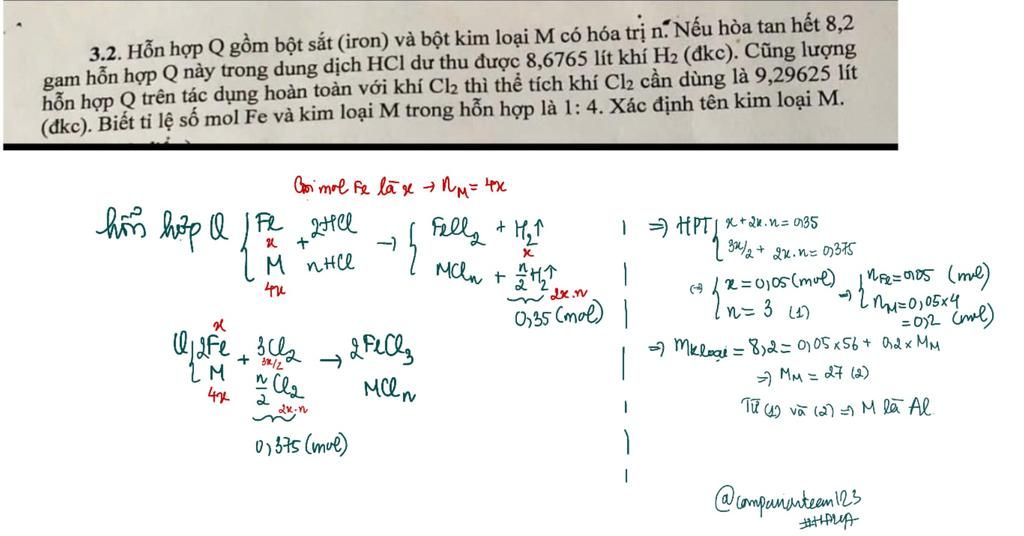 3.2. Hỗn hợp Q gồm bột sắt (iron) và bột kim loại M có hóa trị n. Nếu hòa tan hết 8,2
gam hỗn hợp Q này trong dung dịch HCl dư thu được 8,6765 lít khí H₂ (đkc). Cũng lượng
hỗn hợp Q trên tác dụng hoàn toàn với khí Cl₂ thì thể tích khí Cl₂ cần dùng là 9,29625 lít
(đkc). Biết tỉ lệ số mol Fe và kim loại M trong hỗn hợp là 1: 4. Xác định tên kim loại M.
Gọi mol Fe là x → n_M = 4x
hỗn hợp Q { Fe + 2HCl → { FeCl₂ + H₂↑
x x
M nHCl MCln + n/2 H₂↑
4x 2x.n
0,35 (mol)
x
Q { 2Fe + 3Cl₂ → 2FeCl₃
3x/2
M n/2 Cl₂ MCln
4x 2x.n
0,375 (mol)
⇒ HPT { x + 2x.n = 0,35
3x/2 + 2x.n = 0,375
⇔ { x = 0,05 (mol) ⇒ { n_Fe = 0,05 (mol)
n = 3 (1) n_M = 0,05×4
= 0,2 (mol)
⇒ m kloại = 8,2 = 0,05×56 + 0,2×M_M
⇒ M_M = 27 (2)
Từ (1) và (2) ⇒ M là Al